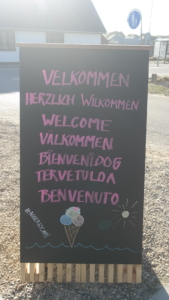 VELKOMMEN
HERZLICH WILKOMMEN
WELCOME
VALKOMMEN
BIENVENIDOG
TERVETULOA
BENVENUTO